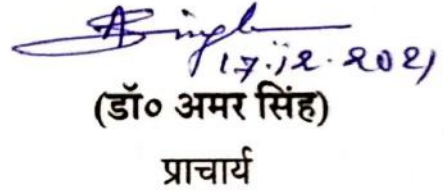 A Singh
17.12.2021
(डॉ० अमर सिंह)
प्राचार्य